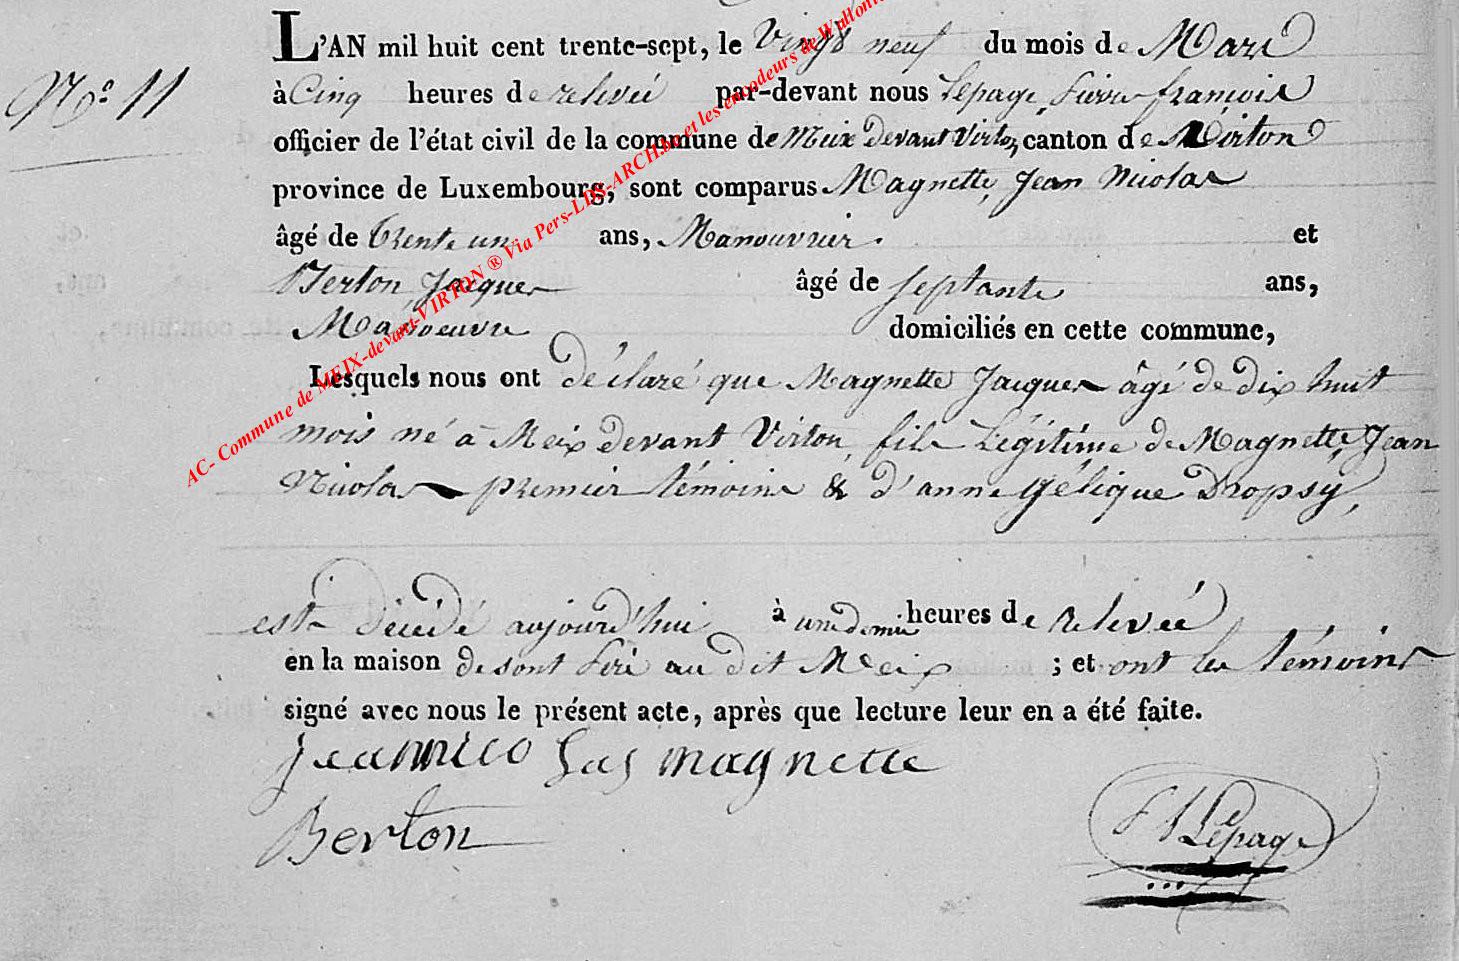 L'AN mil huit cent trente-sept, le Vingt neuf du mois de Mars
N.o 11
à Cinq heures de relevée par-devant nous Lepage, Pierre françois
officier de l'état civil de la commune de Meix devant Virton, canton de Virton
province de Luxembourg, sont comparus Magnette, Jean Nicolas
âgé de Trente un ans, Manouvrier. et
Berton Jacques âgé de septante ans,
Manoeuvre domiciliés en cette commune,
Lesquels nous ont déclaré que Magnette Jacques âgé de dix huit
mois né à Meix devant Virton, fils Légitime de Magnette, Jean
Nicolas premier témoins & d'anne gélique Dropsy,
est décédé aujourd'hui à une demie heures de relevée
en la maison de sont Peré au dit Meix ; et ont les témoins
signé avec nous le présent acte, après que lecture leur en a été faite.
jeannico las magnette
Berton
Lepage
AC- Commune de MEIX-devant-VIRTON ® Via Pers-LDS-ARCH.be et les encodeurs de Wallonie